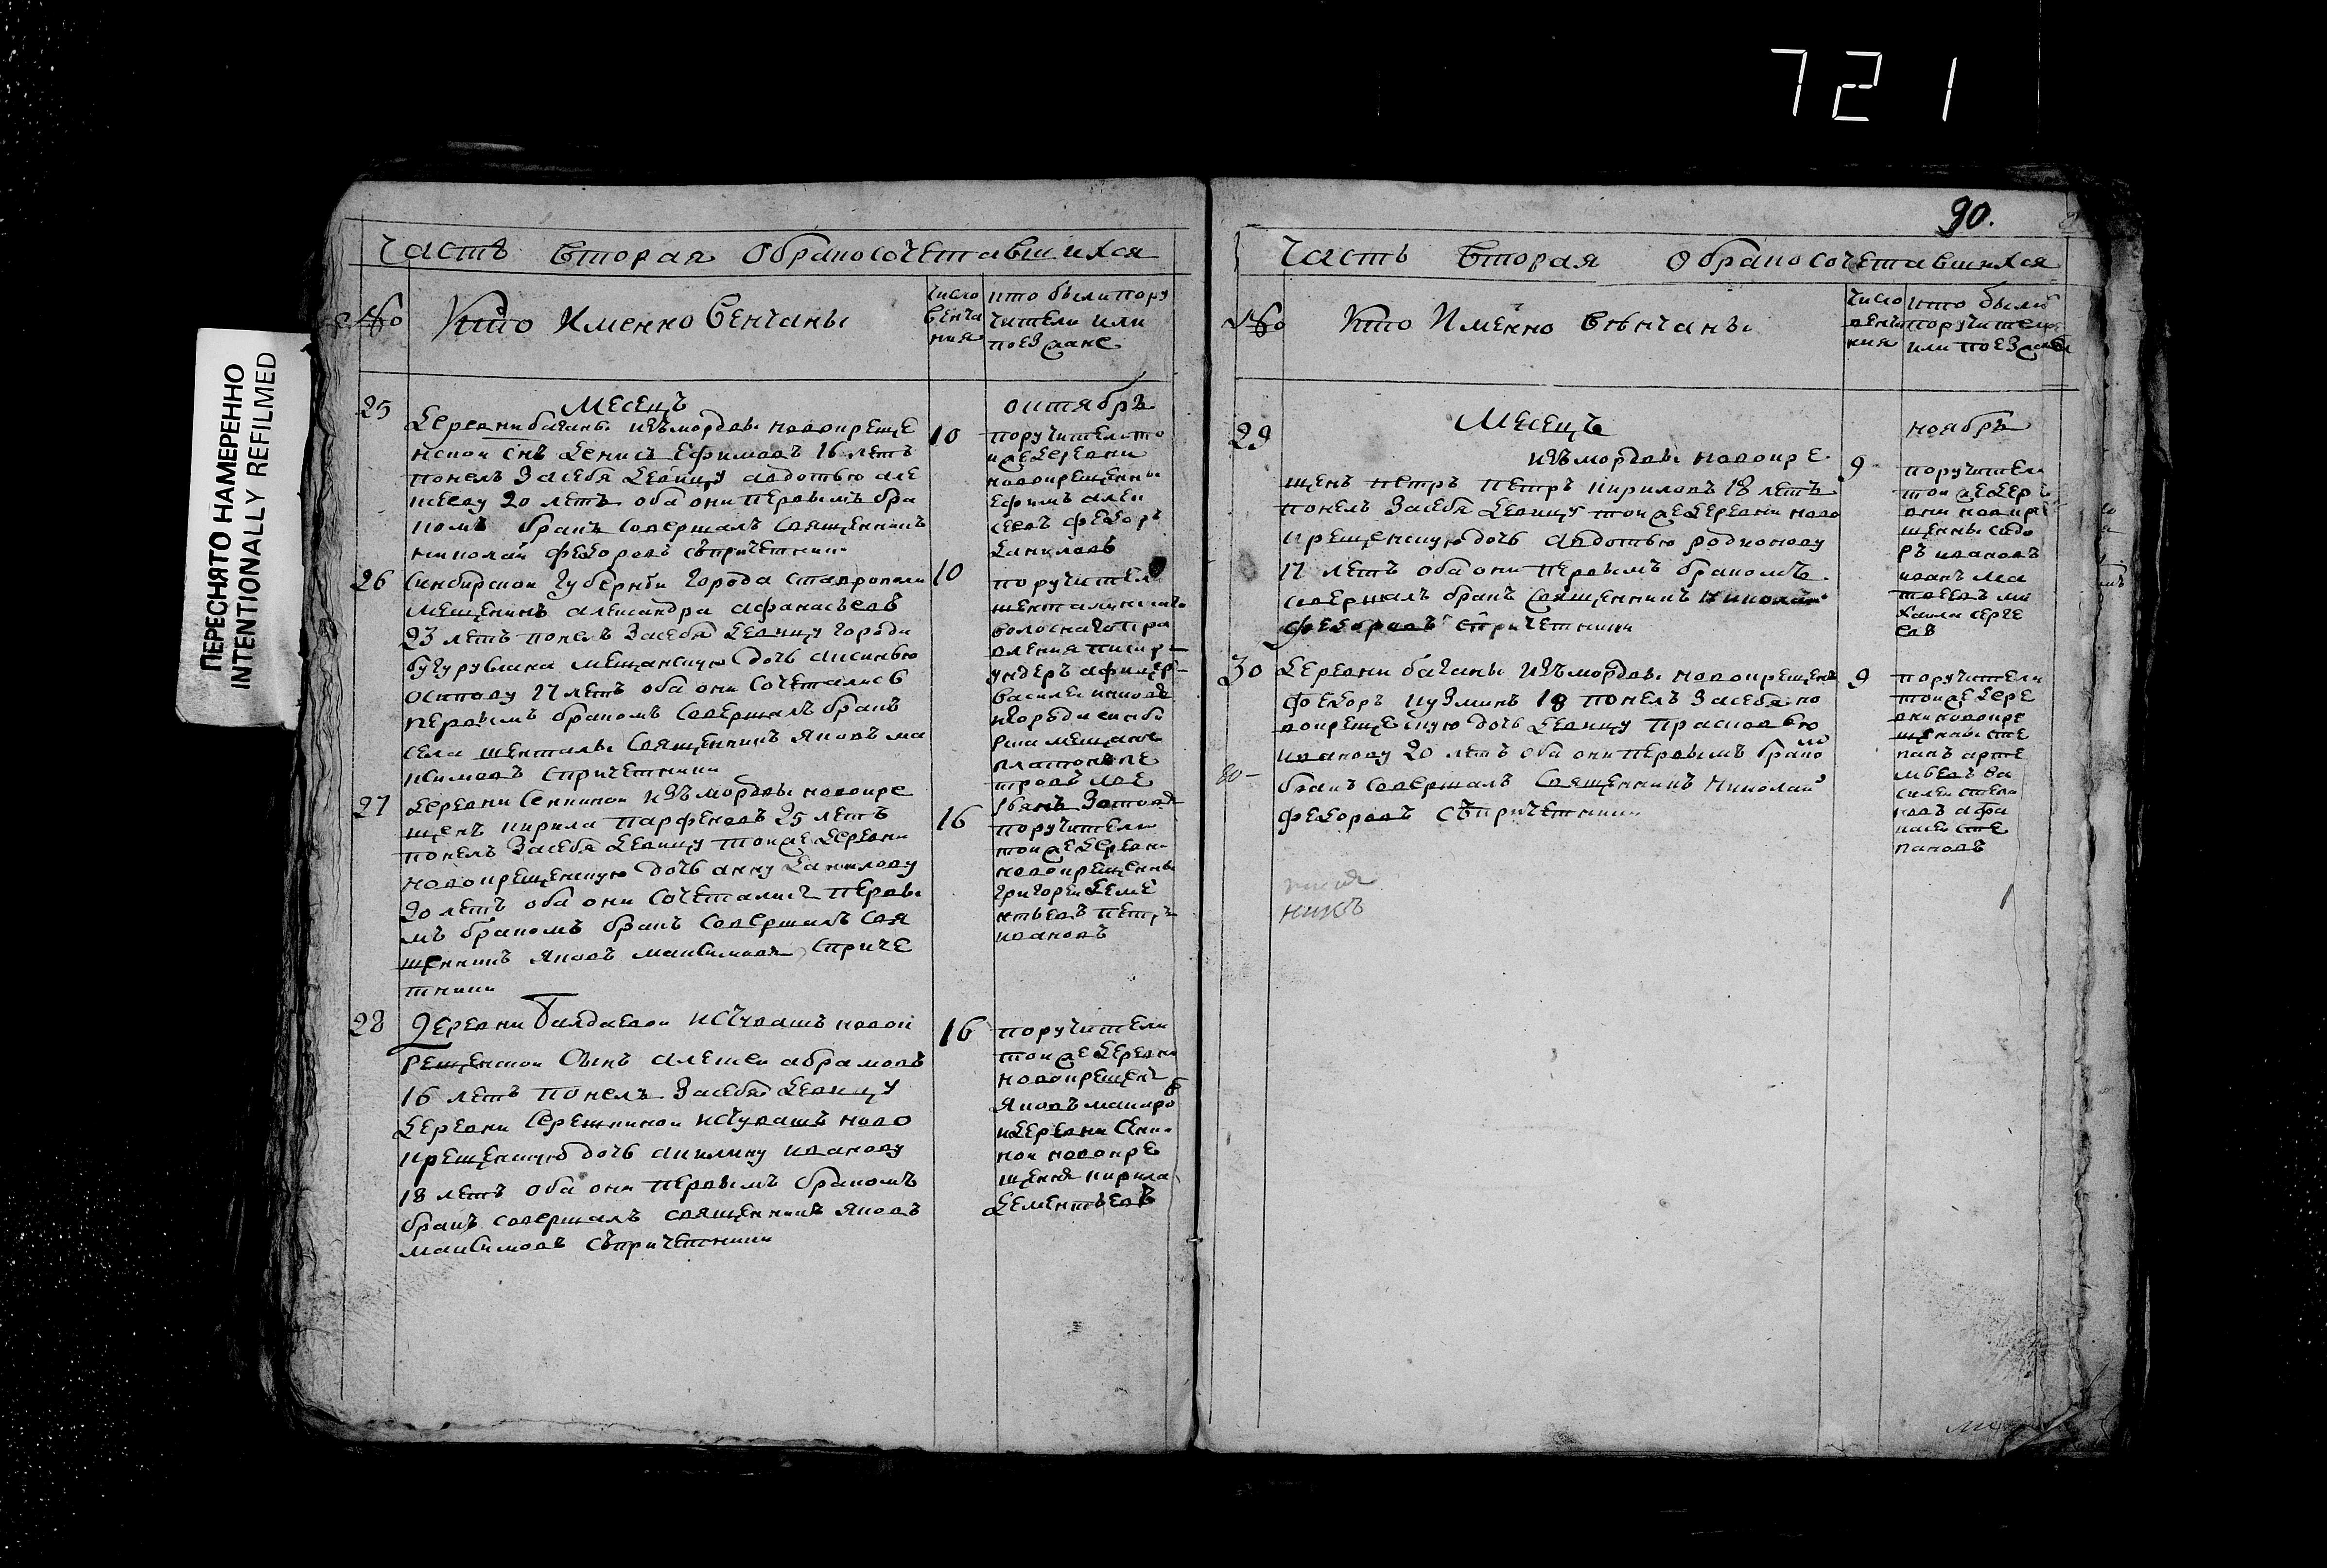 721
ПЕРЕСНЯТО НАМЕРЕННО
INTENTIONALLY REFILMED
Часть вторая обракосочетавшихся
№ Кто Именно венчаны
число венчания
кто были поручители или поезжане
Месецъ октябрь
25
деревни багана изъ мордвы новокреще
нской снъ денисъ Ефимовъ 16 летъ
понелъ засебя девицу авдотью але
ксееву 20 летъ оба они первымъ бра
комъ бракъ совершалъ священникъ
николай федоровъ съпричетники
10
поручители то
иже деревни
новокрещенны
Ефимъ алек
сеевъ федоръ
даниловъ
26
Синбирской губернии города ставрополя
мещенинъ александра афанасьевъ
23 летъ понелъ засебя девицу города
бугуруслана мещанскую дочь аксинью
осипову 17 летъ оба они сочетались
первымъ бракомъ совершалъ бракъ
села шенталы священникъ яковъ ма
ксимовъ спричетники
10
поручители
шенталинскаго
волоснаго пра
вления писарь
ундеръ афицер
василей
городи синби
рска мещане
платонъ пе
тровъ
27
деревни Сенкиной изъ мордвы новокре
щенъ кирила парфеновъ 25 летъ
понелъ засебя девицу тойже деревни
новокрещенскую дочь анну данилову
20 летъ оба они сочетались первы
мъ бракомъ бракъ совершалъ свя
щенникъ яковъ максимовъ спричe
тники
16
поручители
тойже деревни
новокрещенны
григорей деме
нтьевъ петръ
ивановъ
28
деревни балдаевой исчувашъ новок
рещенской сынъ алексей абрамовъ
16 летъ понелъ засебя девицу
деревни серешкиной исчувашъ ново
крещенскую дочь акилину иванову
18 летъ оба они первымъ бракомъ
бракъ совершалъ священникъ яковъ
максимовъ съпричетники
16
поручители
тойже деревни
новокрещенъ
яковъ макаро
идеревни Сенки
ной новокре
щенъ кирила
дементьевъ
90.
Часть вторая обракосочетавшихся
№ Кто Именно венчаны
число венчания
кто были поручители или поезжане
Месецъ ноябрь
29
изъ мордвы новокре
щенъ петръ петръ кириловъ 18 летъ
понелъ засебя девицу тойже деревни ново
крещенскую дочь авдотью родионову
17 летъ оба они первымъ бракомъ
совершалъ бракъ священникъ николай
федоровъ спричетники
9
поручители
тойже дере
вни новокре
щенны сидо
ръ ивановъ
иванъ ма
твеевъ ми
хаила серге
евъ
30
деревни баганы изъ мордвы новокрещенъ
федоръ кузминъ 18 понелъ засебя но
вокрещенскую дочь девицу прасковью
иванову 20 летъ оба они первымъ брако
мъ
бракъ совершалъ священникъ николай
федоровъ съпричетники
9
поручители
тойже дере
вни новокре
щенны сте
панъ арте
мьевъ ва
силей степа
новъ афа
насей сте
пановъ